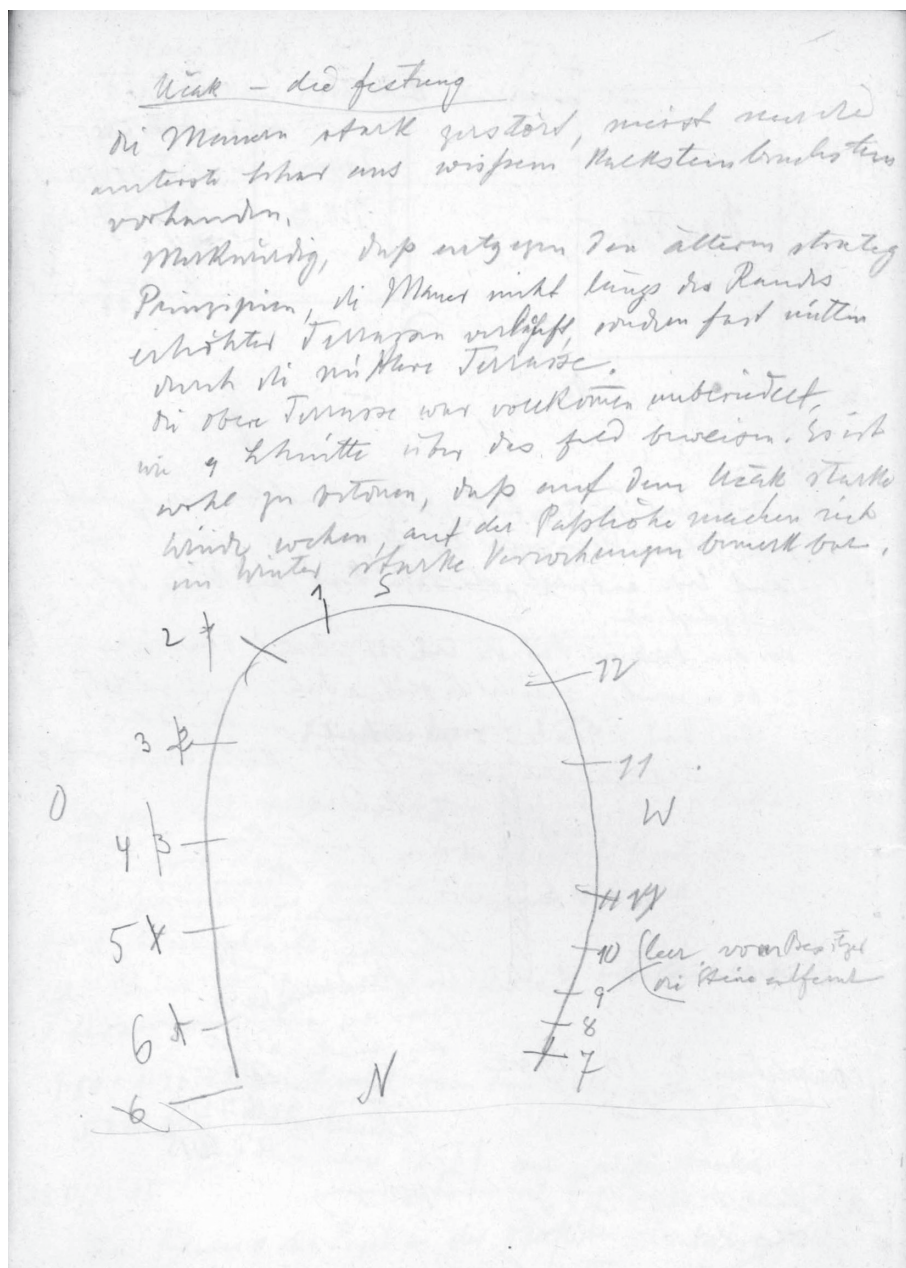 Učak – die Festung
die Mauern stark zerstört, meist nur die
unterste Schar aus weissem Kalksteinbruchstein
vorhanden.
Merkwürdig, daß entgegen den älteren strateg
Prinzipien, die Mauer nicht längs des Randes
erhöhter Terrassen verläuft, sondern fast mitten
durch die mittlere Terrasse.
die obere Terrasse war vollkommen unbesiedelt,
wie 9 Schnitte über das Feld beweisen. Es ist
wohl zu betonen, daß auf dem Učak starke
Winde wehen, auf der Paßhöhe machen sich
im Winter starke Verwehungen bemerkbar.
1 S
2
12
3 2
11
O
W
4 3
5 4
10 (leer, vom Besitzer
die Steine entfernt
9
6 5
8
7
N
6